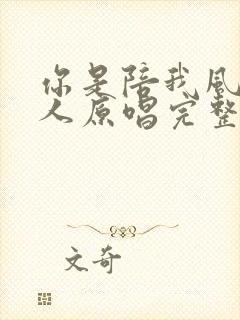 你是陪我风
人原唱完整
文奇